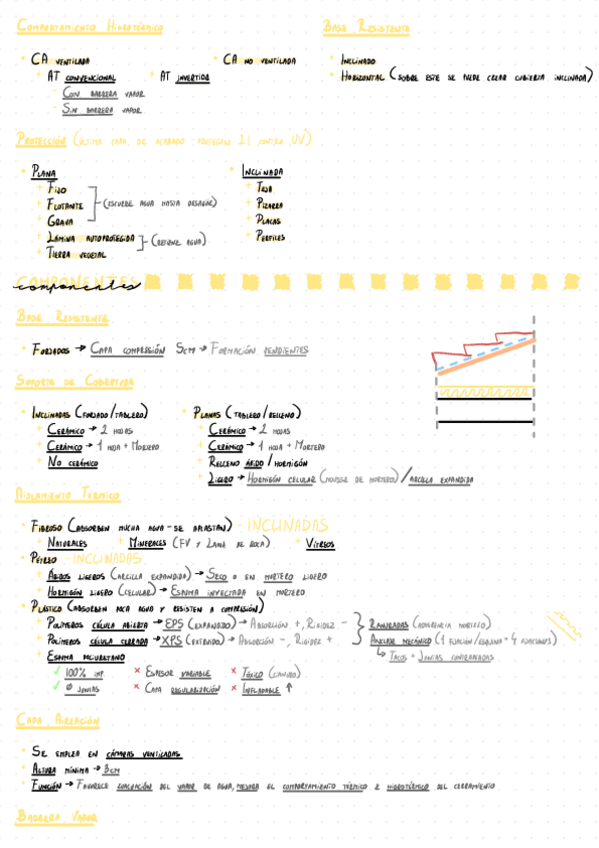 Comportamiento Higrotérmico
Base Resistente
CA ventilada
CA no ventilada
AT convencional
AT invertida
Con barrera vapor
Sin barrera vapor
Inclinado
Horizontal (sobre este se puede crear cubierta inclinada)
Protección (última capa de acabado: protegen LI contra UV)
Plana
Fijo
Flotante
Grava
(escurre agua hasta desagüe)
Lámina autoprotegida
Tierra vegetal
(retiene agua)
Inclinada
Teja
Pizarra
Placas
Perfiles
COMPONENTES
componentes
Base Resistente
Forjados → Capa compresión 5cm → Formación pendientes
Soporte de Cobertura
Inclinadas (forjado/tablero)
Cerámico → 2 hojas
Cerámico → 1 hoja + Mortero
No cerámico
Planas (tablero/relleno)
Cerámico → 2 hojas
Cerámico → 1 hoja + Mortero
Relleno árido / hormigón
Ligero → Hormigón celular (mousse de mortero) / arcilla expandida
Aislamiento Térmico
Fibroso (absorben mucha agua - se aplastan) - INCLINADAS
Naturales + Minerales (FV y Lana de roca) + Vítreos
Pétreo - INCLINADAS
Áridos ligeros (arcilla expandida) → Seco o en mortero ligero
Hormigón ligero (celular) → Espuma inyectada en mortero
Plástico (absorben poca agua y resisten a compresión)
Polímeros célula abierta → EPS (expandido) → Absorción +, Rigidez -
Polímeros célula cerrada → XPS (extruido) → Absorción -, Rigidez +
Ranuradas (adherencia mortero)
Anclaje mecánico (1 fijación/esquina = 4 fijaciones)
↳ Tacos + Juntas contrapeadas
Espuma poliuretano
✓ 100% imp. × Espesor variable × Tóxico (cianuro)
✓ Ø juntas × Capa regularización × Inflamable ↑
Capa Aireación
Se emplea en cámaras ventiladas
Altura mínima → 3cm
Función → Favorece evacuación del vapor de agua, mejora el comportamiento térmico e higrotérmico del cerramiento
Barrera Vapor